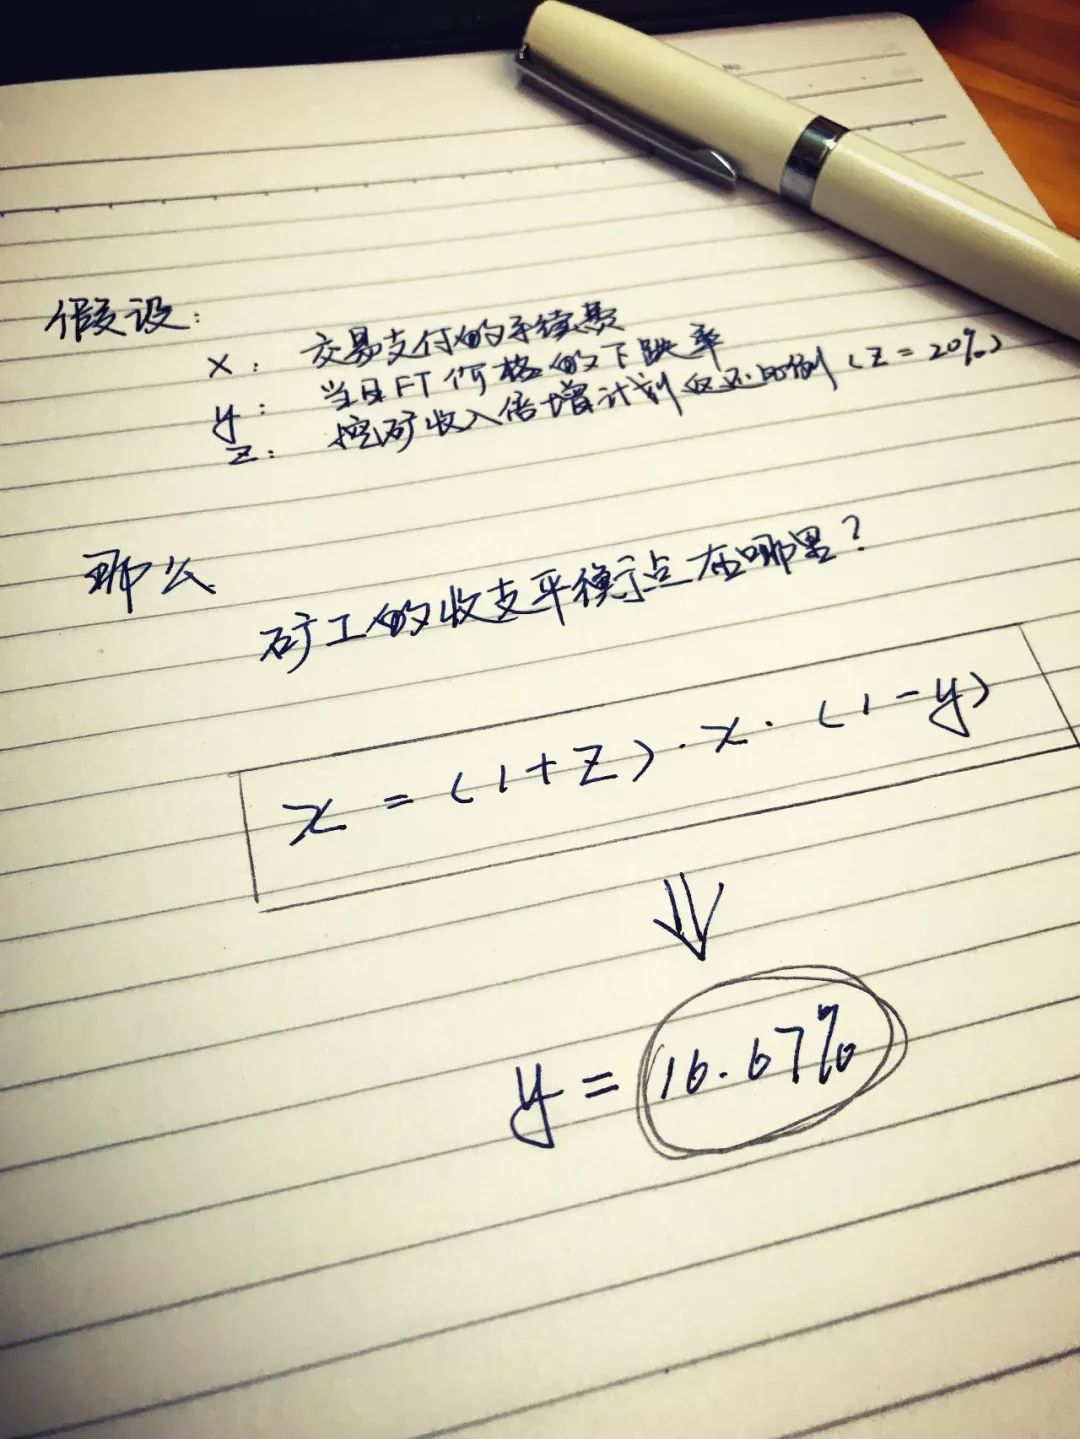 假设:
x: 交易支付的手续费
y: 当日FT价格的下跌率
z: 挖矿收入倍增计划返还比例(z=20%)
那么
矿工的收支平衡点在哪里?
x = (1+z)·x·(1-y)
⇓
y = 16.67%